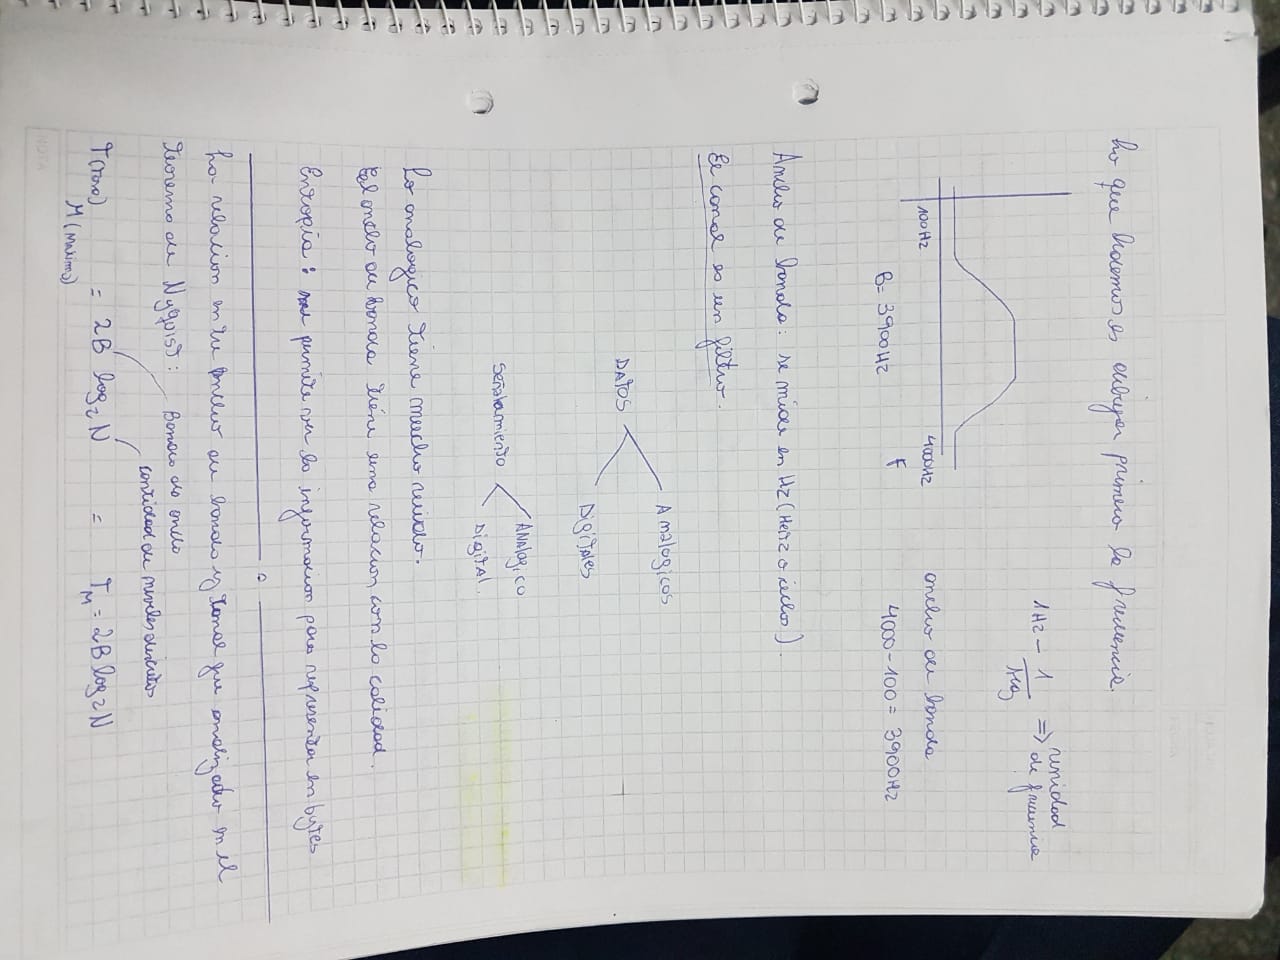 Lo que hacemos es dibujar primero la frecuencia.
1Hz - 1/seg => unidad de frecuencia
100Hz
4000Hz
F
B= 3900Hz
ancho de banda
4000-100= 3900Hz
Ancho de banda: se mide en Hz (Hertz o ciclos).
El canal es un filtro.
Analogicos
DATOS
Digitales
ANAlogico
Señalamiento
Digital.
Lo analogico tiene mucho ruido.
El ancho de banda tiene una relacion con la calidad.
Entropia: permite ver la informacion para representar en bytes
La relacion entre ancho de banda y canal fue analizado en el
teorema de Nyquist: Banda de ancho
cantidad de niveles discretos
T(Tasa) = 2B log2 N = TM = 2B log2 N
M (Maximo)
NOTA